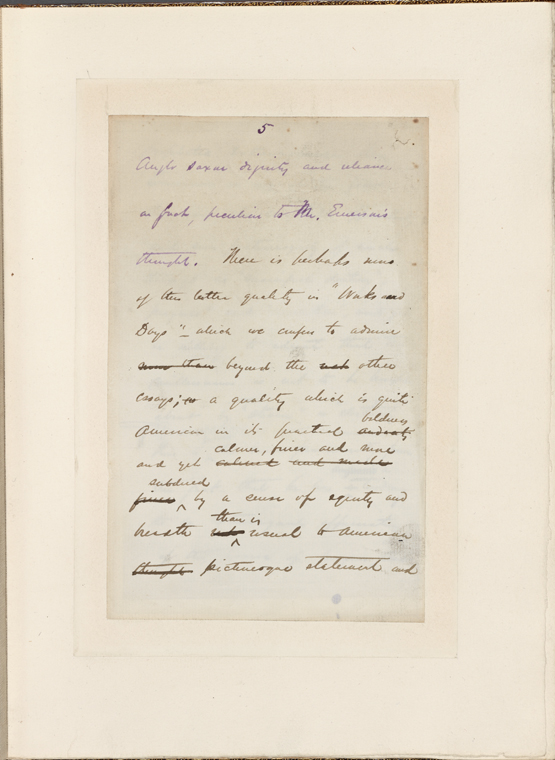 5
Anglo Saxon dignity and reliance
on fact, peculiar to Mr. Emerson's
thought. There is perhaps more
of this latter quality in "Works and
Days" – which we confess to admire
more than beyond the other
essays; a quality which is quite
boldness
American in its practical audacity
calmer, finer and more
and yet calmest and made
subdued
finer by a sense of equity and
than is
breadth usual to American
thought picturesque statement and